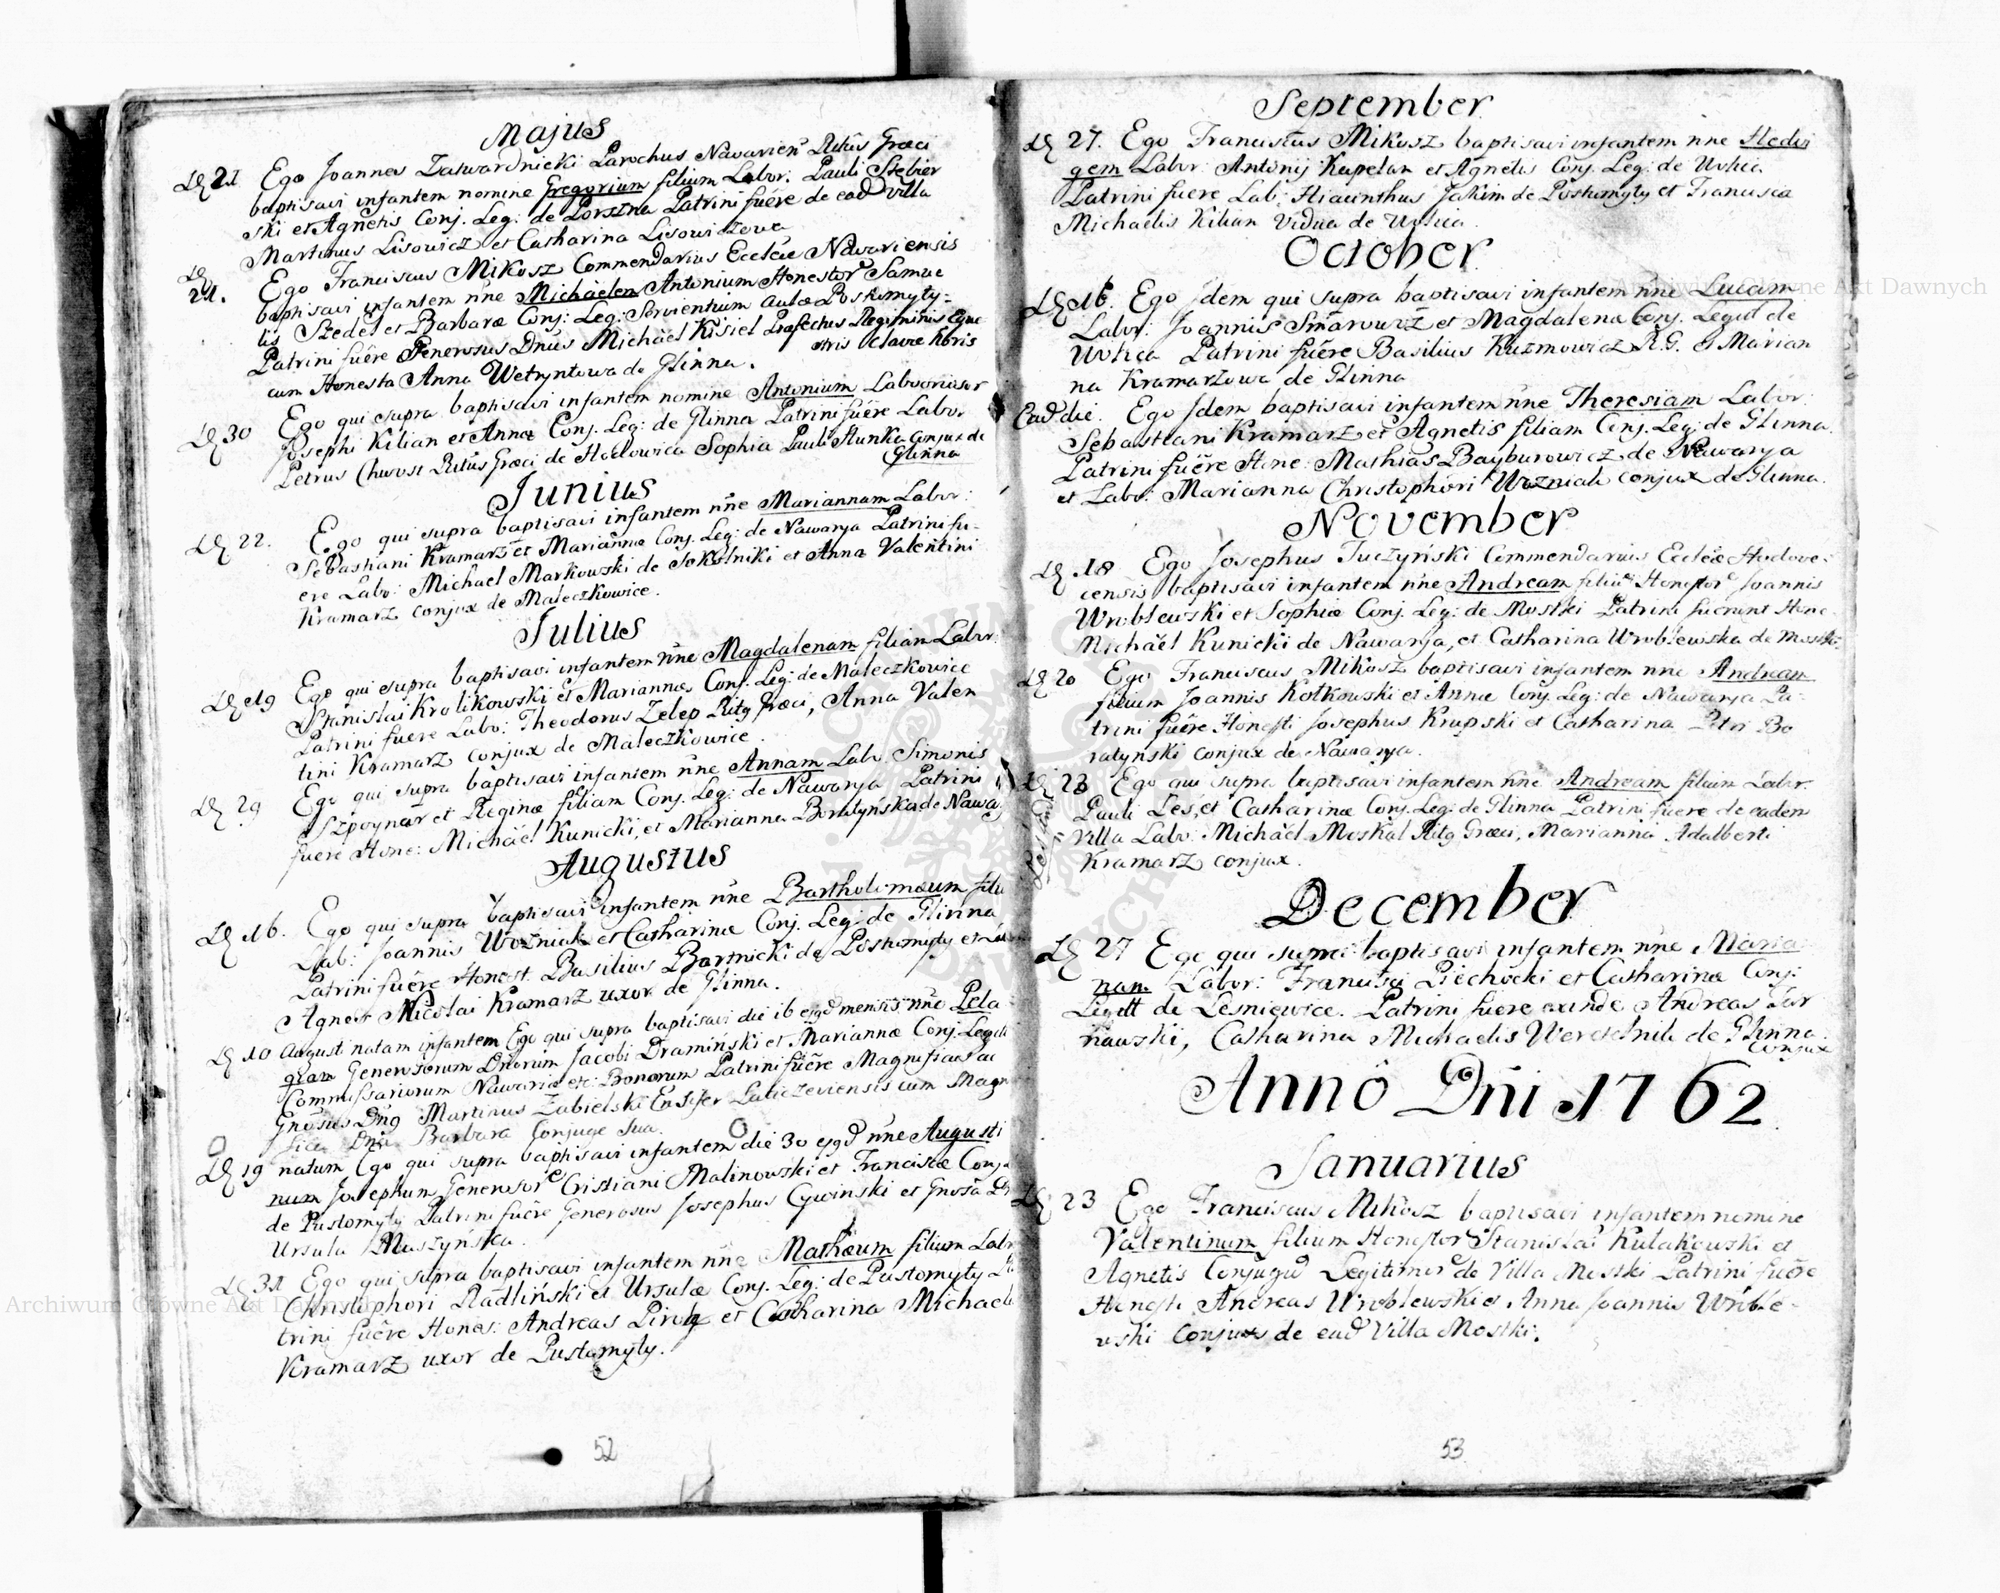 Majus
D 21 Ego Joannes Zatwardnicki Parochus Navarien Ritus Græci
baptisavi infantem nomine Gregorium filium Labor: Pauli Stebier
ski et Agnetis Conj. Leg: de Porszna Patrini fuêre de ead villa
Martinus Lisowicz et Catharina Lisowiczowa
D 21. Ego Franciscus Mikosz Commendarius Eccleæ Navariensis
baptisavi infantem nne Michaelem Antonium Honestor Samue
lis Szedel et Barbaræ Conj: Leg: Servientium aulæ Postomyty-
Patrini fuêre Generosus Dnus Michäel Kisiel Præfectus Regiminis Eque
stris
cum Honesta Anna Wetryntowa de Glinna.
D 30 Ego qui supra baptisavi infantem nomine Antonium Laborioser
Josephi Kilian et Annæ Conj. Leg: de Glinna Patrini fuêre Labor
Petrus Chwost Ritus Græci de Hodowica Sophia Pauli Hunka Conjux de
Glinna
Junius
D 22. Ego qui supra baptisavi infantem nne Mariannam Labor:
Sebastiani Kramarz et Mariannæ Conj. Leg: de Nawarya Patrini fu-
ere Labo: Michael Markowski de Sokolniki et Anna Valentini
Kramarz conjux de Maleczkowice.
Julius
D 19 Ego qui supra baptisavi infantem nne Magdalenam filiam Labor:
Stanislai Krolikowski et Mariannæ Conj. Leg: de Maleczkowice
Patrini fuere Labo: Theodorus Zelep Ritg Græci, Anna Valen
tini Kramarz conjux de Maleczkowice.
D 29 Ego qui supra baptisavi infantem nne Annam Lab. Simonis
Szpoynar et Reginæ filiam Conj. Leg: de Nawarya Patrini
fuere Hone: Michäel Kunicki, et Marianna Boratynska de Nawa
Augustus
D 16. Ego qui supra baptisavi infantem nne Bartholomæum filiu
Lab: Joannis Wozniak et Catharinæ Conj. Leg: de Glinna
Patrini fuêre Honest. Basilius Bartnicki de Postomyty et
Agnes Nicolai Kramarz uxor de Glinna.
D 10 Augusti natam infantem Ego qui supra baptisavi die 16 ejgd mensis nne Pela
giam Generosorum Dnorum Jacobi Dramiński et Mariannæ Conj. Legitt
Commissariorum Nawariæ etc: Bonorum Patrini fuêre Magnificus ac
Gnosus Dng Martinus Zabielski Ensifer Laticzeviensis cum Magn
fica Dna Barbara Conjuge Sua.
D 19 natum Ego qui supra baptisavi infantem die 30 ejgd nne Augusti
num Josephum Generosor Cristiani Malinowski et Franciscæ Conj.
de Pustomyty Patrini fuêre Generosus Josephus Cywinski et Gnosa
Ursula Muszyńska.
D 31 Ego qui supra baptisavi infantem nne Mathæum filium Labr
Christophori Radliński et Ursulæ Conj. Leg: de Pustomyty Pa
trini fuêre Hones: Andreas et Catharina Michael
Kramarz uxor de Pustomyty.
52
September
D 27. Ego Franciscus Mikosz baptisavi infantem nne Hedvi
gem Labor: Antonij Kapelan et Agnetis Conj. Leg: de Wolica
Patrini fuere Lab: Hiacinthus Jakim de Postomyty et Francisca
Michaelis Kilian Vidua de Wolica.
October
D 16. Ego Jdem qui supra baptisavi infantem nne Lucam
Labor: Joannis Smarowuz et Magdalena Conj. Legitt de
Wolica Patrini fuêre Basilius Kuzmowicz R.G. & Marian
na Kramarzowa de Glinna
Ead die. Ego Jdem baptisavi infantem nne Theresiam Labor:
Sebastiani Kramarz et Agnetis filiam Conj. Leg: de Glinna.
Patrini fuêre Hone: Mathias Bayburowicz de Nawarya
et Labo: Marianna Christophori Wozniak conjux de Glinna.
November
D 18 Ego Josephus Tuczyński Commendarius Eccleæ Hodovi-
censis baptisavi infantem nne Andream filiu Honestor Joannis
Wroblewski et Sophiæ Conj. Leg: de Mostki Patrini fuerunt Hone:
Michäel Kunicki de Nawarya, et Catharina Wroblewska de Mostki.
D 20 Ego Franciscus Mikosz baptisavi infantem nne Andream
filium Joannis Kotkowski et Annæ Conj. Leg: de Nawarya Pa-
trini fuêre Honesti Josephus Krupski et Catharina Petri Bo
ratyński conjux de Nawarya.
D 23 Ego qui supra baptisavi infantem nne Andream filium Labor.
Pauli Les, et Catharinæ Conj. Leg: de Glinna Patrini fuere de eadem
Villa Labo: Michäel Moskal Ritg Græci, Marianna Adalberti
Kramarz conjux.
December
D 27 Ego qui supra baptisavi infantem nne Maria
nam Labor: Francisci Piechocki et Catharinæ Conj:
Legitt de Lesniewice. Patrini fuere exinde Andreas Tar
nawski, Catharina Michaelis de Glinna.
conjux
Annô Dñi 1762
Januarius
D 23 Ego Franciscus Mikosz baptisavi infantem nomine
Valentinum filium Honestor Stanislai Kulakowski et
Agnetis Conjugu Legitimor de Villa Mostki Patrini fuêre
Honesti Andreas Wroblewski et Anna Joannis Wroble-
wski Conjux de ead Villa Mostki.
53
Archiwum Główne Akt Dawnych